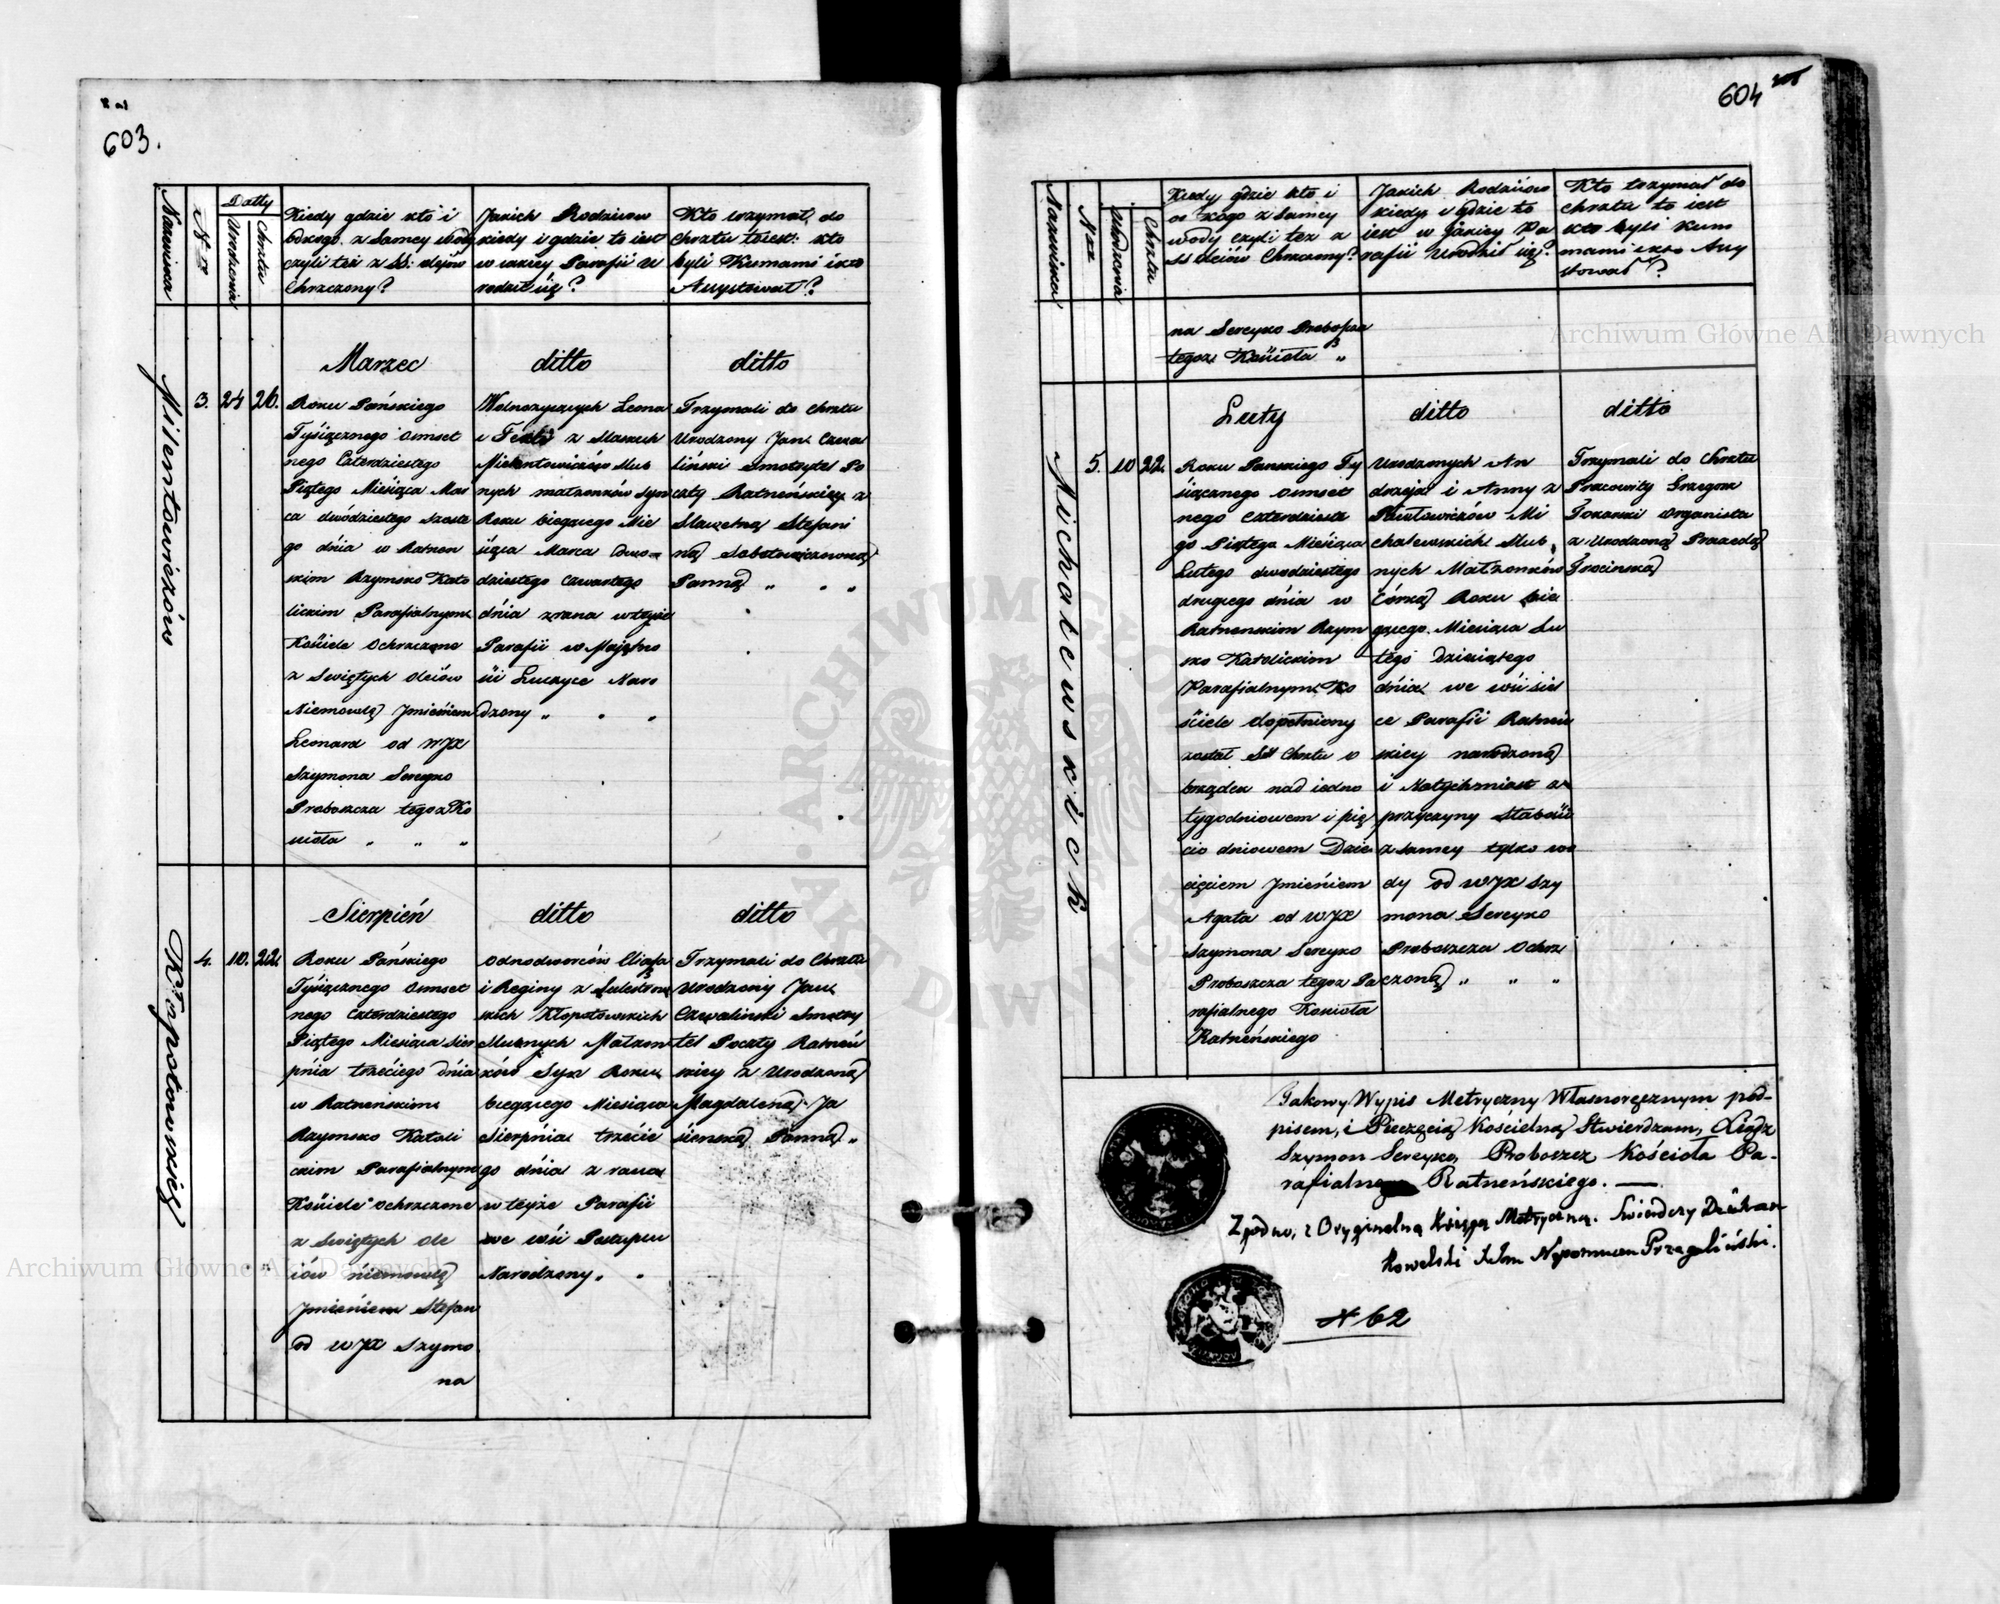 603.
Nazwiska
N
Datty
Urodzenia
Chrztu
Kiedy gdzie kto i
od kogo z Samey wody
czyli też z SS: olejów
Chrzczony?
Jakich Rodziców
kiedy i gdzie to iest
w iakiey Parafii U
rodził się?
Kto trzymał do
Chrztu toiest: kto
byli Kumami i kto
Assystował?
Milentowiczów
3.
24
26.
Marzec
Roku Pańskiego
Tysiącznego Osmset
nego Czterdziestego
Piątego Miesiąca Mar
ca dwódziestego szoste
go dnia w Ratnen
skim Rzymsko Kato
lickim Parafialnym
Kościele Ochrzczono
z Swiętych Oleiów
Niemowlę Jmieniem
Leonard od WJX
Szymona Sereyko
Proboszcza tegoż Ko
ścioła " " "
ditto
Wolnożyjących Leona
i Tekli z
Milentowiczów Slub
nych małżonków syn
Roku biegącego Mie
siąca Marca dwo
dziestego czwartego
dnia zrana w teyże
Parafii w Majętno
ści Luczyce Naro
dzony " " "
ditto
Trzymali do Chrztu
Urodzony Jan Czewa
liński Smotrytel Po
czty Ratneńskiey z
Sławetną Stefani
ną Sobotowiczowną
Panną " " "
Kłopotowskich
4.
10.
22.
Sierpień
Roku Pańskiego
Tysiącznego Osmset
nego Czterdziestego
Piątego Miesiąca Sier
pnia trzeciego dnia
w Ratneńskim
Rzymsko Katoli
ckim Parafialnym
Kościele Ochrzczono
z Swiętych Ole
iów niemowlę
Jmieniem Stefan
od WJX Szymo
na
ditto
Odnodworców Eliasza
i Reginy z
skich Kłopotowskich
Slubnych Małżon
ków Syn Roku
biegącego Miesiąca
Sierpnia trzecie
go dnia z rana
w teyże Parafii
we wsi Postuplu
Narodzony " "
ditto
Trzymali do Chrztu
Urodzony Jan
Czewalinski Smotry
tel Poczty Ratneń
skiey z Urodzoną
Magdaleną Ja
sieńską Panną "
604
Nazwiska
N
Urodzenia
Chrztu
Kiedy gdzie kto i
od kogo z Samey
wody czyli też z
SS Oleiów Chrzczony?
Jakich Rodziców
kiedy i gdzie to
iest w jakiey Pa
rafii Urodził się?
Kto trzymał do
chrztu to iest
kto byli Kum
mami i kto Assy
stował?
na Sereyko Proboszcza
tegoż Kościoła "
Michalewskich
5.
10
22.
Luty
Roku Panskiego Ty
siącznego Osmset
nego Czterdzieste
go Piątego Miesiąca
Lutego dwodziestego
drugiego dnia w
Ratnenskim Rzym
sko Katolickim
Parafialnym Ko
ściele dopełniony
został SSt Chrztu o
brządek nad iedno
tygodniowem i pię
cio dniowem Dzie
cięciem Jmieniem
Agata od WJX
Szymona Sereyko
Proboszcza tegoż Pa
rafialnego Kościoła
Ratneńskiego
ditto
Urodzonych An
drzeja i Anny z
Pawłowiczów Mi
chalewskich Slub
nych Małżonków
Córkę Roku bie
gącego Miesiąca Lu
tego dziesiątego
dnia we wsi siel
ce Parafii Ratneń
skiey narodzoną
i Natychmiast z
przyczyny słabości
z samey tylko wo
dy od WJX Szy
mona Sereyko
Proboszcza Ochrz
czoną " " "
ditto
Trzymali do Chrztu
Pracowity Grzegorz
Organista
z Urodzoną
Jakowy Wypis Metryczny Własnoręcznym pod-
pisem, i Pieczęcią Kościelną Stwierdzam, Xiądz
Szymon Sereyko, Proboszcz Kościoła Pa-
rafialnego Ratneńskiego.
Zgodno, z Oryginalną Księgą Metryczną. Swiadczy Dziekan
Kowelski Nepomucen Przegaliński.
N 62
Archiwum Główne Akt Dawnych
Archiwum Główne Akt Dawnych
ARCHIWUM GŁÓWNE AKT DAWNYCH